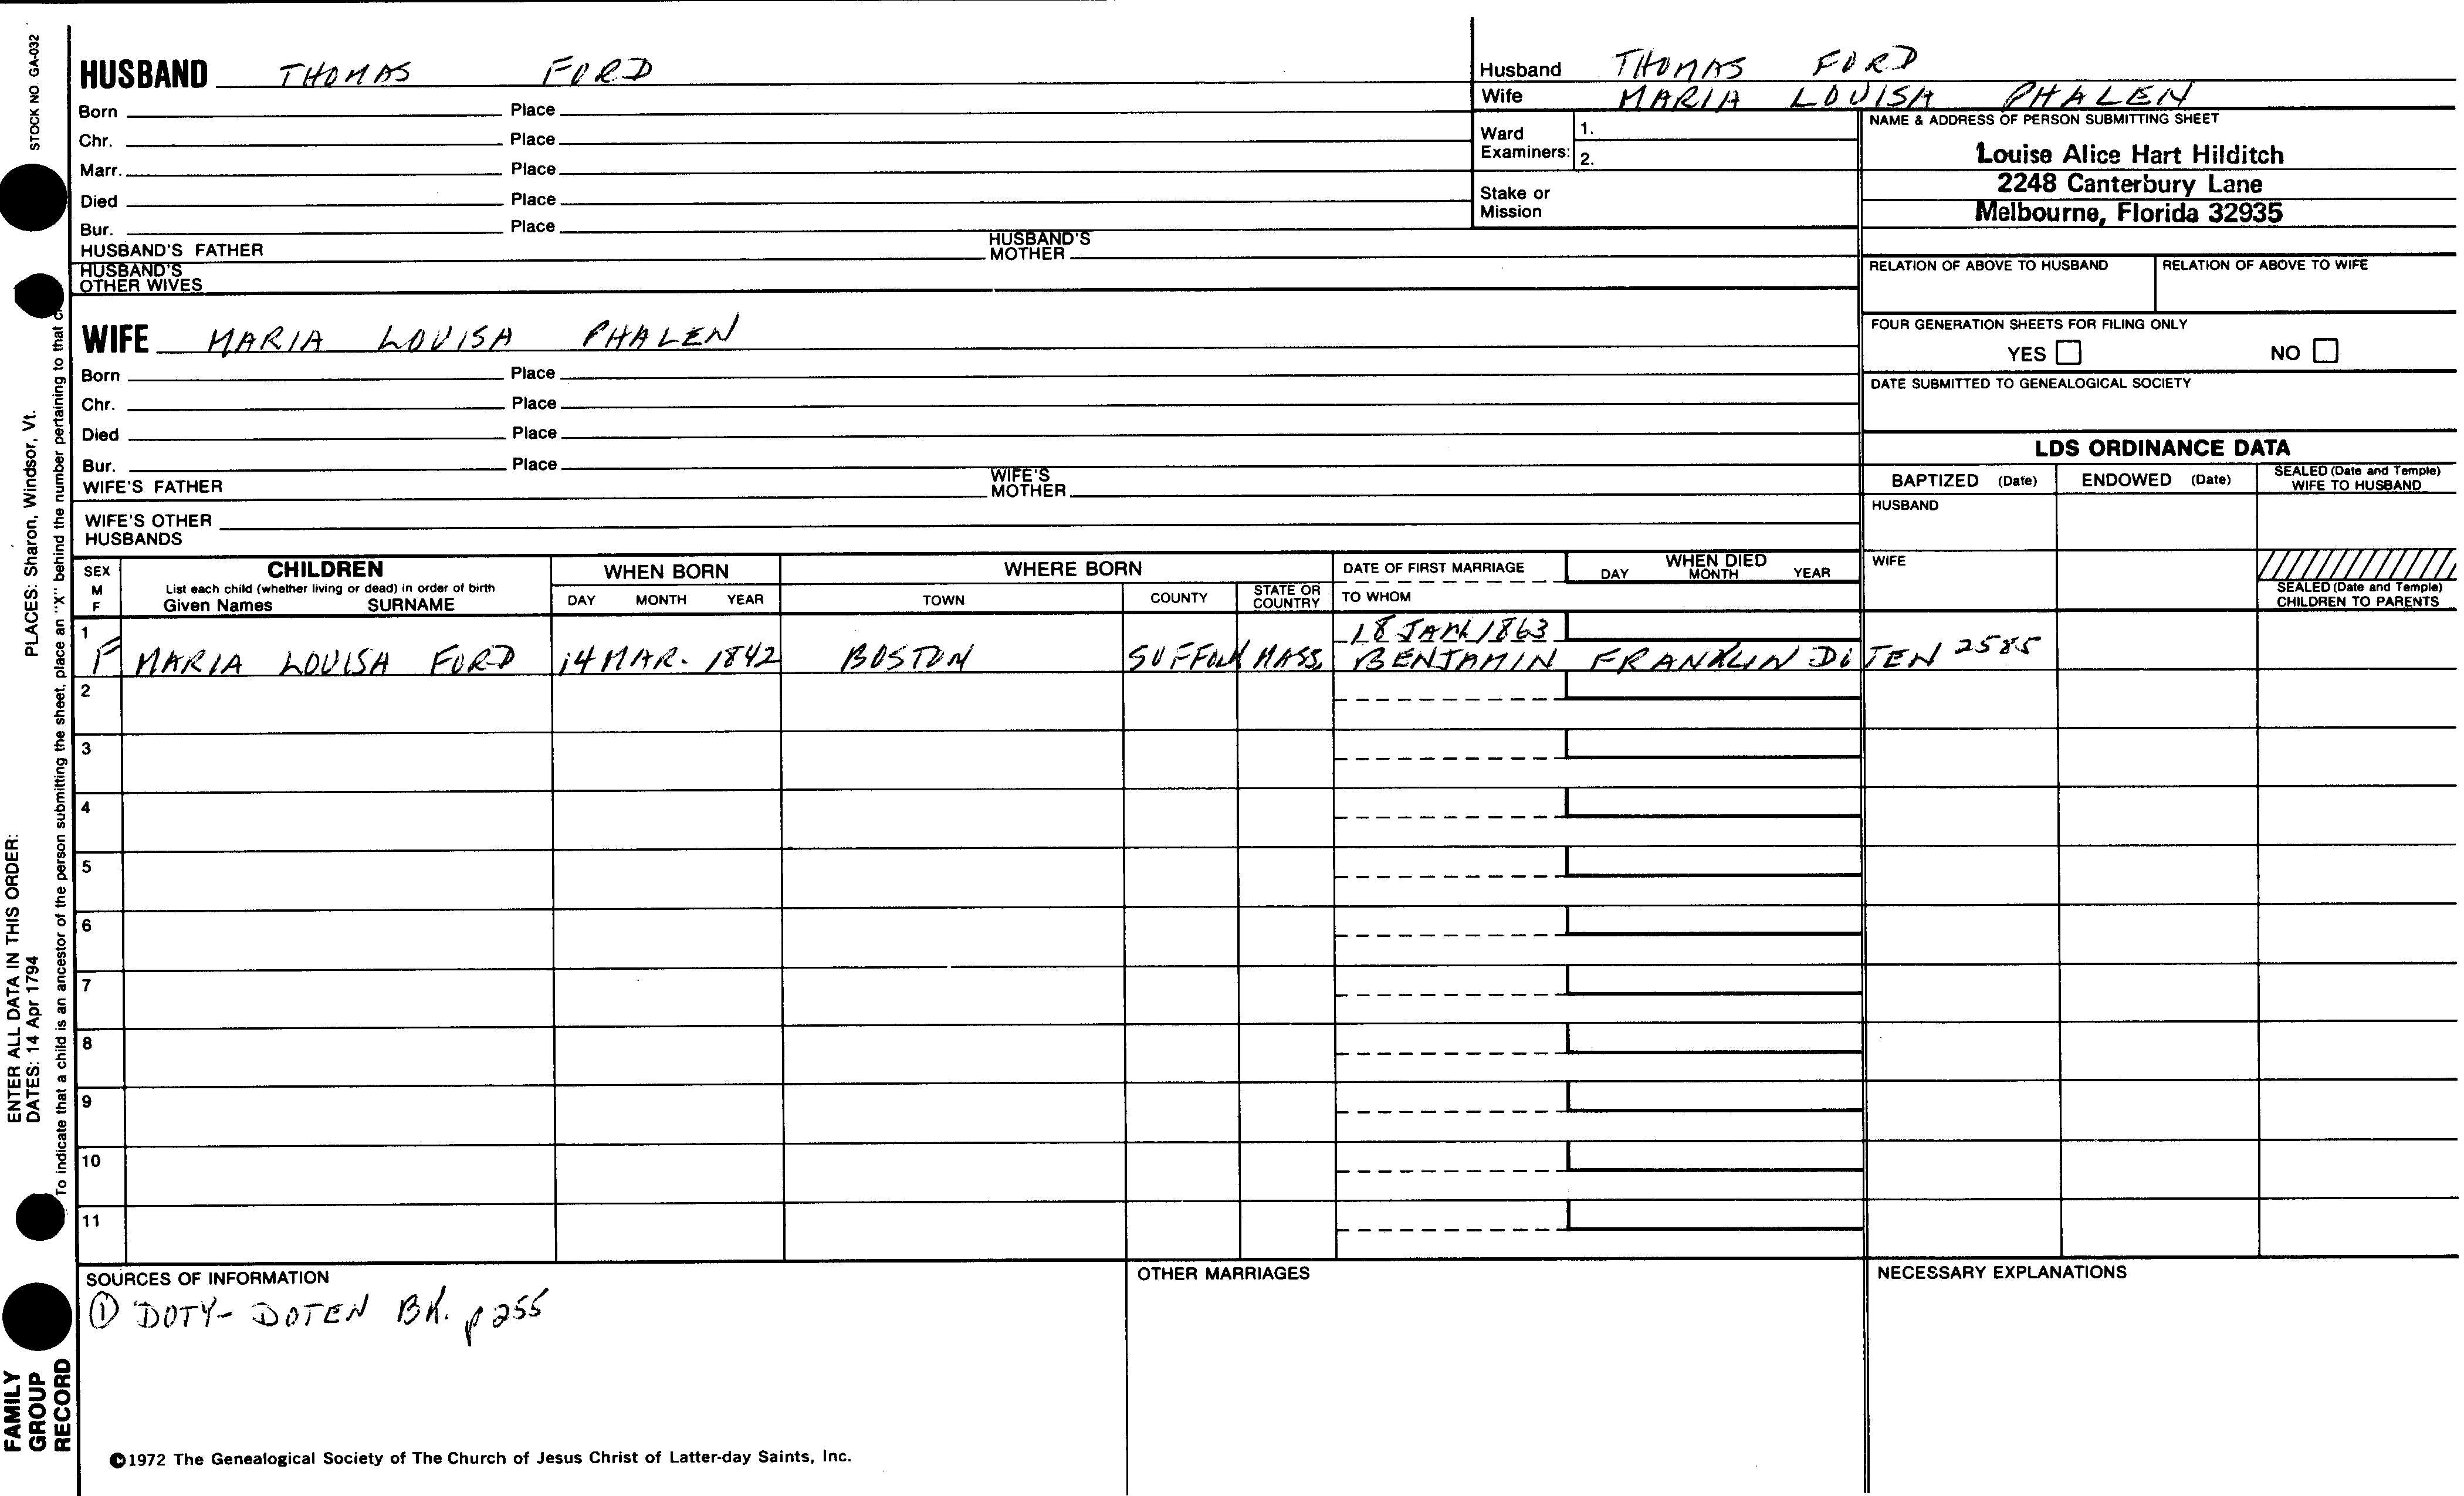 STOCK NO. GA-032
HUSBAND THOMAS FORD
Born Place
Chr. Place
Marr. Place
Died Place
Bur. Place
HUSBAND'S FATHER HUSBAND'S MOTHER
HUSBAND'S OTHER WIVES
WIFE MARIA LOUISA PHALEN
Born Place
Chr. Place
Died Place
Bur. Place
WIFE'S FATHER WIFE'S MOTHER
WIFE'S OTHER HUSBANDS
Husband THOMAS FORD
Wife MARIA LOUISA PHALEN
Ward Examiners: 1.
2.
Stake or Mission
NAME & ADDRESS OF PERSON SUBMITTING SHEET
Louise Alice Hart Hilditch
2248 Canterbury Lane
Melbourne, Florida 32935
RELATION OF ABOVE TO HUSBAND RELATION OF ABOVE TO WIFE
FOUR GENERATION SHEETS FOR FILING ONLY
YES NO
DATE SUBMITTED TO GENEALOGICAL SOCIETY
LDS ORDINANCE DATA
BAPTIZED (Date) ENDOWED (Date) SEALED (Date and Temple) WIFE TO HUSBAND
HUSBAND
WIFE
SEALED (Date and Temple) CHILDREN TO PARENTS
SEX M F
CHILDREN
List each child (whether living or dead) in order of birth
Given Names SURNAME
WHEN BORN
DAY MONTH YEAR
WHERE BORN
TOWN COUNTY STATE OR COUNTRY
DATE OF FIRST MARRIAGE
TO WHOM
WHEN DIED
DAY MONTH YEAR
1
18 JAN 1863
F MARIA LOUISA FORD 14 MAR. 1842 BOSTON SUFFOLK MASS. BENJAMIN FRANKLIN DOTEN 2585
2
3
4
5
6
7
8
9
10
11
SOURCES OF INFORMATION
① DOTY-DOTEN BK. p 255
OTHER MARRIAGES
NECESSARY EXPLANATIONS
©1972 The Genealogical Society of The Church of Jesus Christ of Latter-day Saints, Inc.
PLACES: Sharon, Windsor, Vt.
ENTER ALL DATA IN THIS ORDER:
DATES: 14 Apr 1794
To indicate that a child is an ancestor of the person submitting the sheet, place an "X" behind the number pertaining to that
FAMILY
GROUP
RECORD